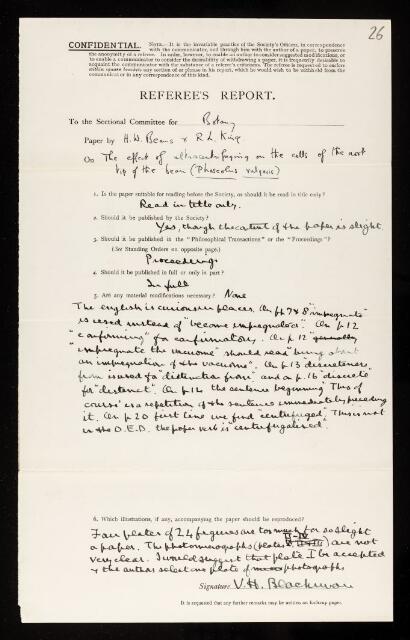 26
CONFIDENTIAL. NOTE.—It is the invariable practice of the Society's Officers, in correspondence
with the communicator, and through him with the author of a paper, to preserve
the anonymity of a referee. In order, however, to enable an author to consider suggested modifications, or
to enable a communicator to consider the desirability of withdrawing a paper, it is frequently desirable to
acquaint the communicator with the substance of a referee's criticisms. The referee is requested to enclose
within square brackets any section of or phrase in his report, which he would wish to be withheld from the
communicator in any correspondence of this kind.
REFEREE'S REPORT.
To the Sectional Committee for Botany
Paper by H. W. Beams & R. L. King
On The effect of ultracentrifuging on the cells of the root
tip of the bean (Phaseolus vulgaris)
1. Is the paper suitable for reading before the Society, or should it be read in title only?
Read in title only.
2. Should it be published by the Society?
Yes, though the content of the paper is slight.
3. Should it be published in the "Philosophical Transactions" or the "Proceedings"?
(See Standing Orders on opposite page.)
Proceedings
4. Should it be published in full or only in part?
In full
5. Are any material modifications necessary? None
The english is curious in places. On pp 7 & 8 "impregnate"
is used instead of "become impregnated". On p 12
"confirming" for confirmatory. On p. 12
"impregnate the vacuome" should read "bring about
an impregnation of the vacuome". On p 13 discreteness
from is used for "distinction from" and on p. 16 "discrete"
for "distinct". On p 14 the sentence beginning "This of
course" is a repetition of the sentence immediately preceding
it. On p 20 first line we find "centrifuged". This is not
in the O.E.D. the proper verb is "centrifugalised".
6. Which illustrations, if any, accompanying the paper should be reproduced?
Four plates of 24 figures are too much for so slight
a paper. The photomicrographs (plates II-IV) are not
very clear. I would suggest that plate I be accepted
& the author select one plate of photographs
Signature V. H. Blackman
It is requested that any further remarks may be written on foolscap paper.